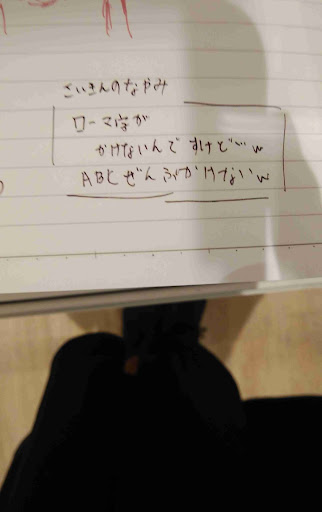 さいきんのなやみ
ローマ字が
かけないんですけど…w
ABCぜんぶかけないw